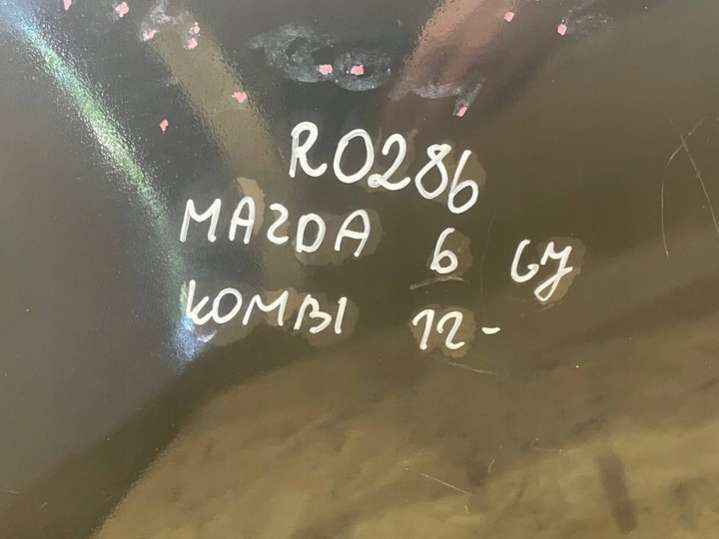 RO286
MAZDA 6 GJ
KOMBI 12-